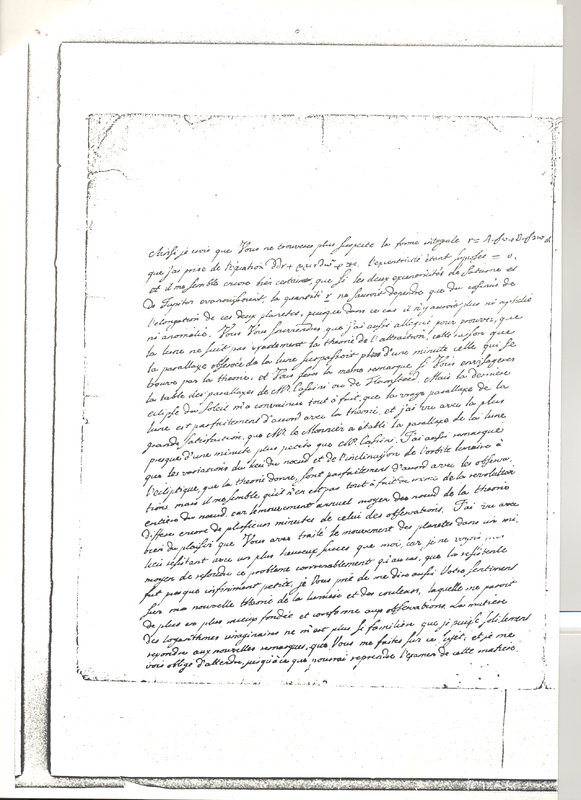 Ainsi je crois que Vous ne trouveres plus suspecte la forme integrale r =
que j'ai prise de l'equation ddr + l'excentricité étant supposée = 0,
et il me semble encore bien certain, que si les deux excentricités de Saturne et
de Jupiter evanouissoient, la quantité r ne sauroit dependre que du cosinus de
l'elongation de ces deux planetes, puisque dans ce cas il n'y auroit plus ni apsides
ni anomalie. Vous Vous souviendres que j'ai aussi allegué pour prouver, que
la lune ne suit pas exactement la theorie de l'attraction, cette raison que
la parallaxe observée de la lune surpassoit plus d'une minute celle qui se
trouve par la theorie, et Vous feres la meme remarque si Vous envisageres
la table des parallaxes de Mr. Cassini ou de Flamsteed. Mais la derniere
eclipse du Soleil m'a convaincu tout à fait, que la vraye parallaxe de la
lune est parfaitement d'accord avec la theorie, et j'ai vu avec la plus
grande satisfaction, que Mr. le Monnier a etabli la parallaxe de la lune
presque d'une minute plus petite que Mr. Cassini. J'ai aussi remarqué
que les variations du lieu du noeud et de l'inclinaison de l'orbite lunaire à
l'ecliptique, que la theorie donne, sont parfaitement d'accord avec les observa-
tions mais il me semble qu'il n'en est pas tout à fait de meme de la revolution
entiere du noeud, car le mouvement annuel moyen des noeud de la theorie
differe encore de plusieurs minutes de celui des observations. J'ai vu avec
bien du plaisir que Vous aves traité le mouvement des planetes dans un mi-
lieu resistant avec un plus heureux succes que moi, car je ne voyois
moyen de resoudre ce probleme convenablement qu'au cas, que la resistence
fut presque infiniment petite, je Vous prie de me dire aussi Votre sentiment
sur ma nouvelle theorie de la lumiere et des couleurs, laquelle me paroit
de plus en plus mieux fondée et conforme aux observations. La matiere
des logarithmes imaginaires ne m'est plus si familiere que je puisse solidement
repondre aux nouvelles remarques, que Vous me faites sur ce sujet, et je me
vois obligé d'attendre, jusqu'à ce que je pourrai reprendre l'examen de cette matiere.